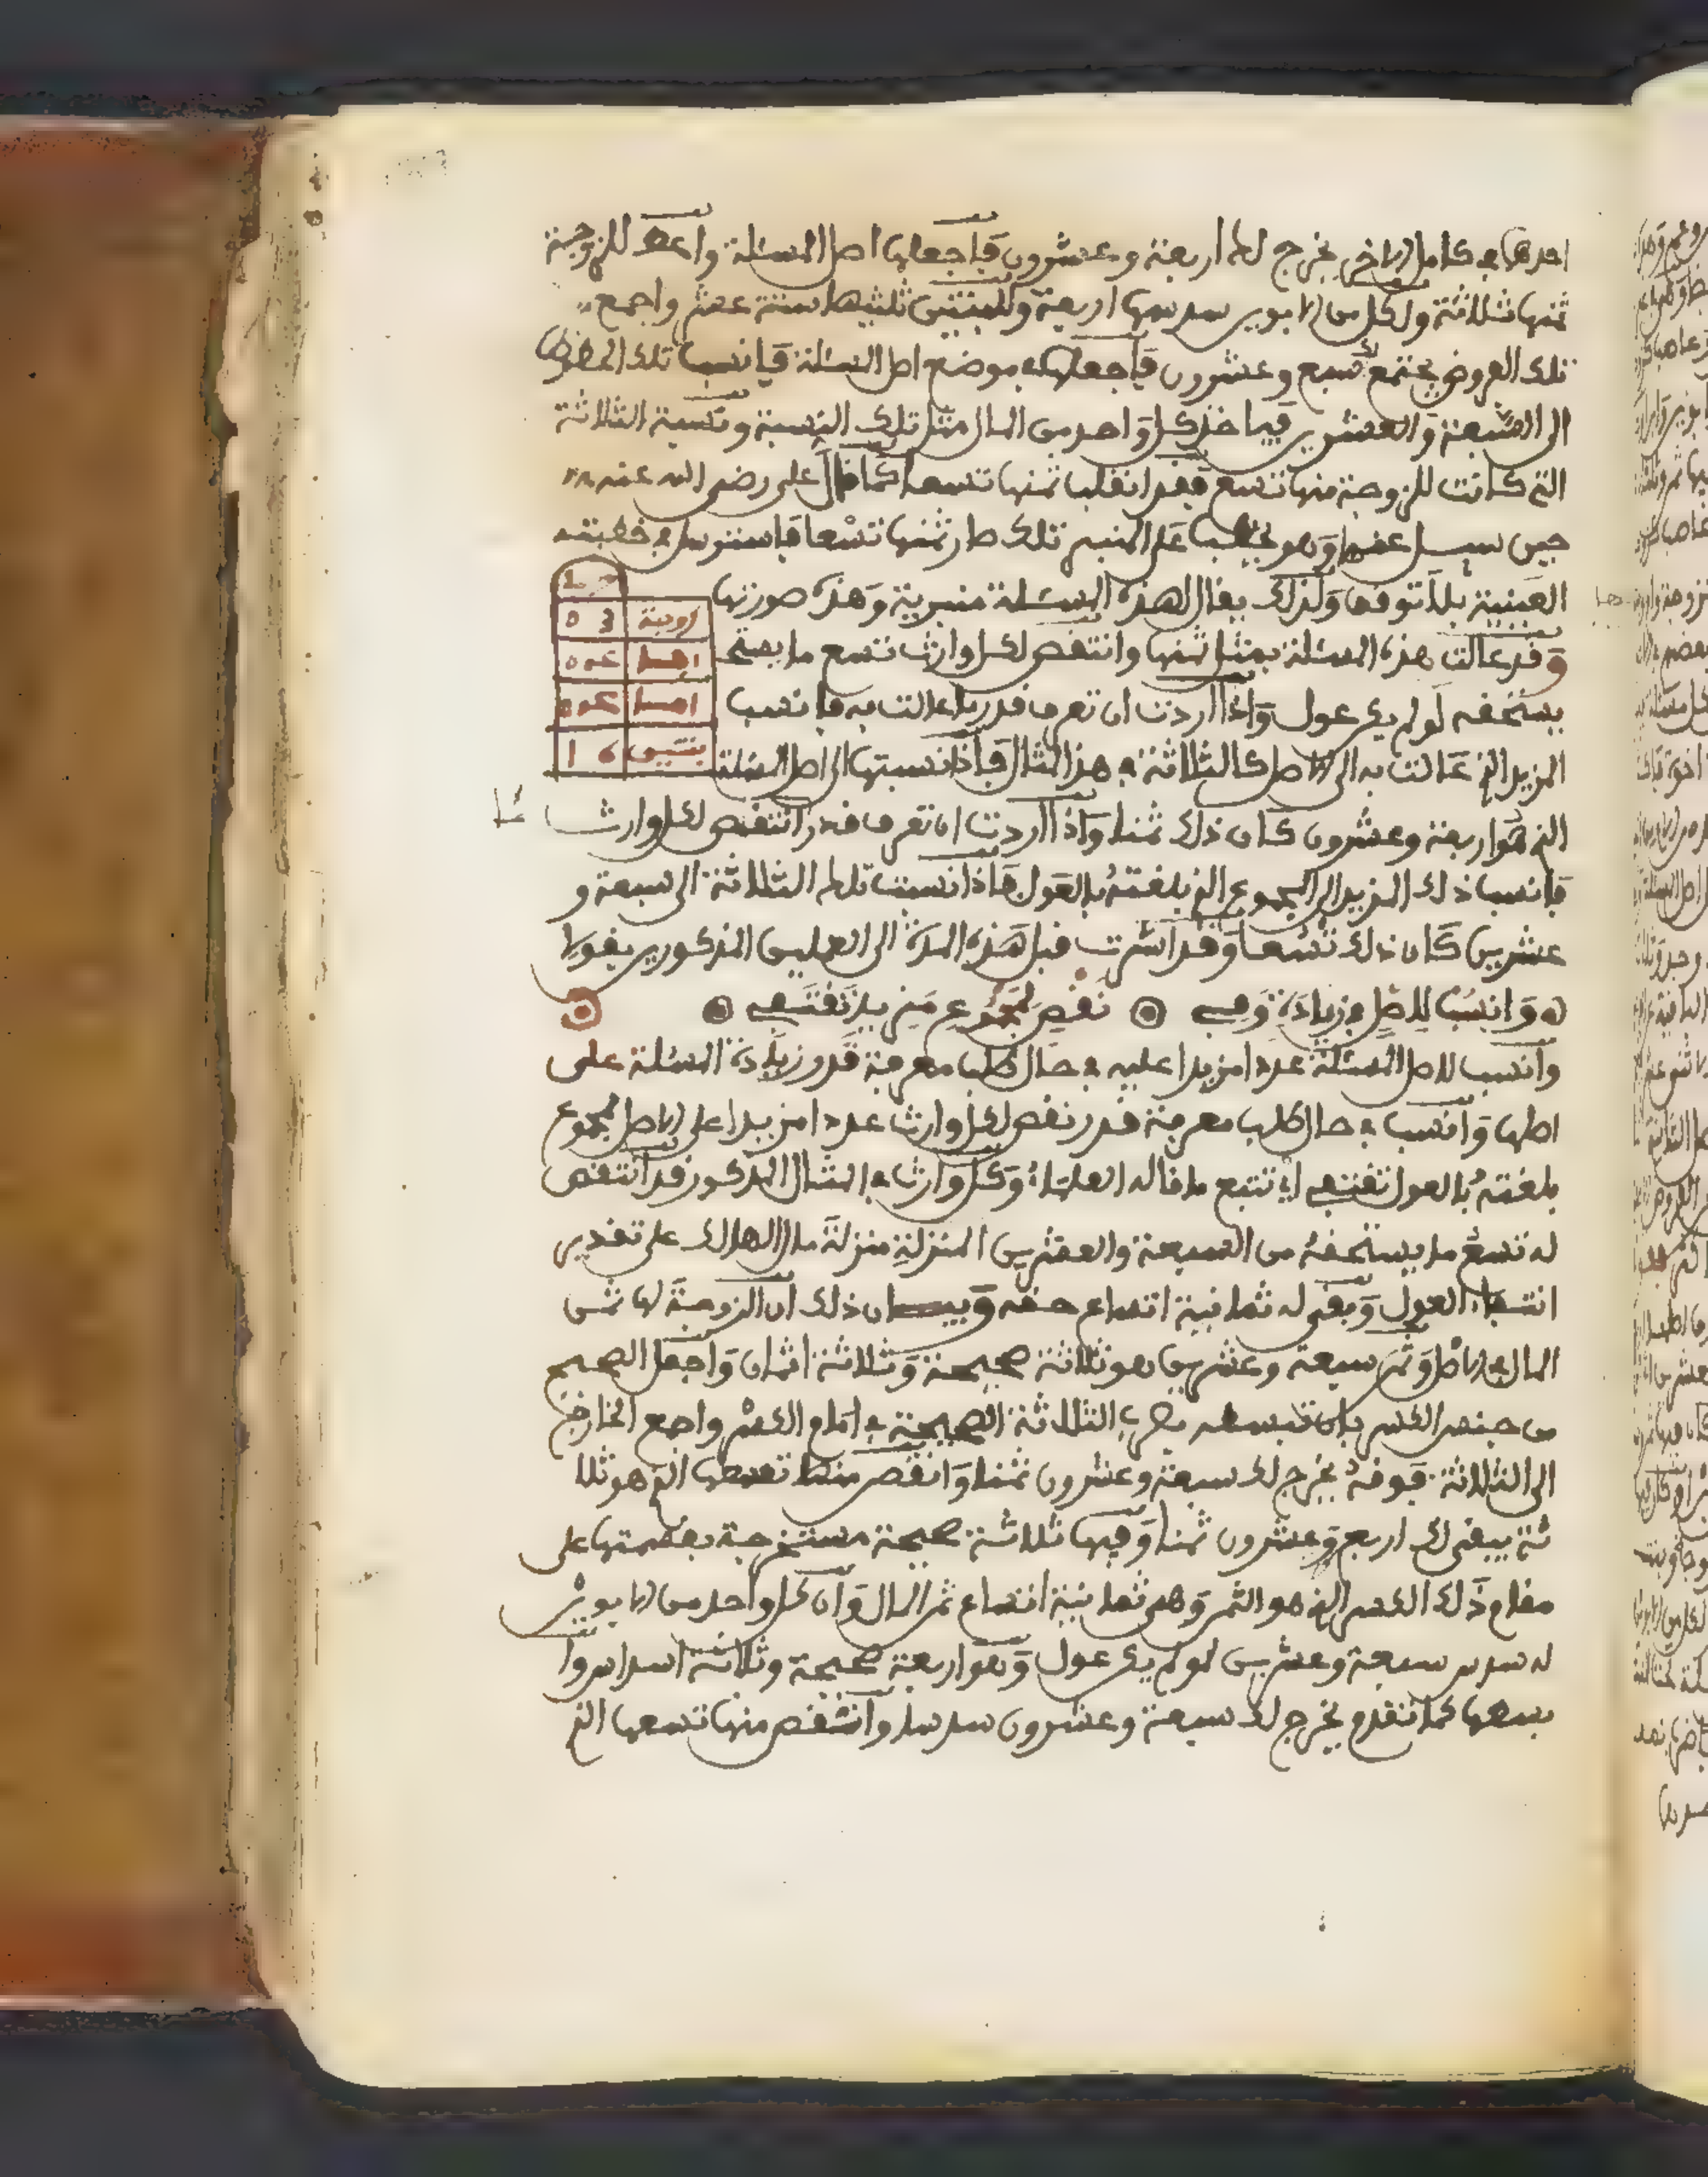 احدهما في كامل الاخر يخرج لك اربعة وعشرون فاجعلها اصل المسئلة واعط للزوجة
ثمنها ثلاثة ولكل من الابوين سدسها اربعة وللبنتين ثلثيها ستة عشر واجمع
تلك الفروض يجتمع لك سبع وعشرون فاجعلها في موضع اصل المسئلة فانسب تلك الحظوظ
الى السبعة والعشرين فياخذ كل واحد من المال مثل تلك النسبة ونسبة الثلاثة
التي كانت للزوجة منها تسع فقد انقلب ثمنها تسعا كما قال علي رضي الله عنه
حين سيل عنها وهو يخطب على المنبر تلك صار ثمنها تسعا فاسترسل في خطبته
العينية بلا توقف ولذلك يقال لهذه المسئلة منبرية وهذه صورتها
وقد عالت هذه المسئلة بمثل ثمنها وانتقص لكل وارث تسع ما يستح
يستحقه لو لم يكن عول واذا اردت ان تعرف قدر ما عالت به فانسب
المزيد الذي عالت به الى الاصل كالثلاثة في هذا المثال فاذا نسبتها الى اصل المسئلة
الذي هو اربعة وعشرون كان ذلك ثمنا واذا اردت ان تعرف قدر انتقص لكل وارث
فانسب ذلك المزيد الى المجموع الذي بلغته بالعول فاذا نسبت تلك الثلاثة الى سبعة و
عشرين كان ذلك تسعا وقد اشرت قبل هذه المدة الى العملين المذكورين بقولي
وانسب للاصل في زيادة وفي نقص لمجموع مزيد تقتفي
وانسب للاصل المسئلة عددا مزيدا عليه في حال طلب معرفة قدر زيادة المسئلة على
اصلها وانسب في حال طلب معرفة قدر نقص لكل وارث عددا مزيدا على الاصل لمجموع
بلغته بالعول تقتفي اي تتبع ما قاله العلماء وكل وارث في المثال المذكور قد انتقص
له تسع ما يستحقه من السبعة والعشرين المنزلة منزلة مال الهالك على تقدير
انتفاء العول وبقي له ثمانية اتساع حقه وبيان ذلك ان الزوجة لها ثمن
المال في الاصل وثمن سبعة وعشرين هو ثلاثة صحيحة وثلاثة اثمان واجعل الصحيح
من جنس الكسر بان تبسطه بضرب الثلاثة الصحيحة في امام الكسر واجمع الخارج
الى الثلاثة فوقه يخرج لك سبعة وعشرون ثمنا وانقص منها تسعها الذي هو ثلا
ثة يبقى لك اربع وعشرون ثمنا وفيها ثلاثة صحيحة مستخرجة بقسمتها على
مقام ذلك الكسر الذي هو الثمن وهي ثمانية اتساع ثمن المال وان كل واحد من الابوين
له سدس سبعة وعشرين لو لم يكن عول وهو اربعة صحيحة وثلاثة اسداس وا
بسطها كما تقدم يخرج لك سبعة وعشرون سدسا وانتقص منها تسعها الذي